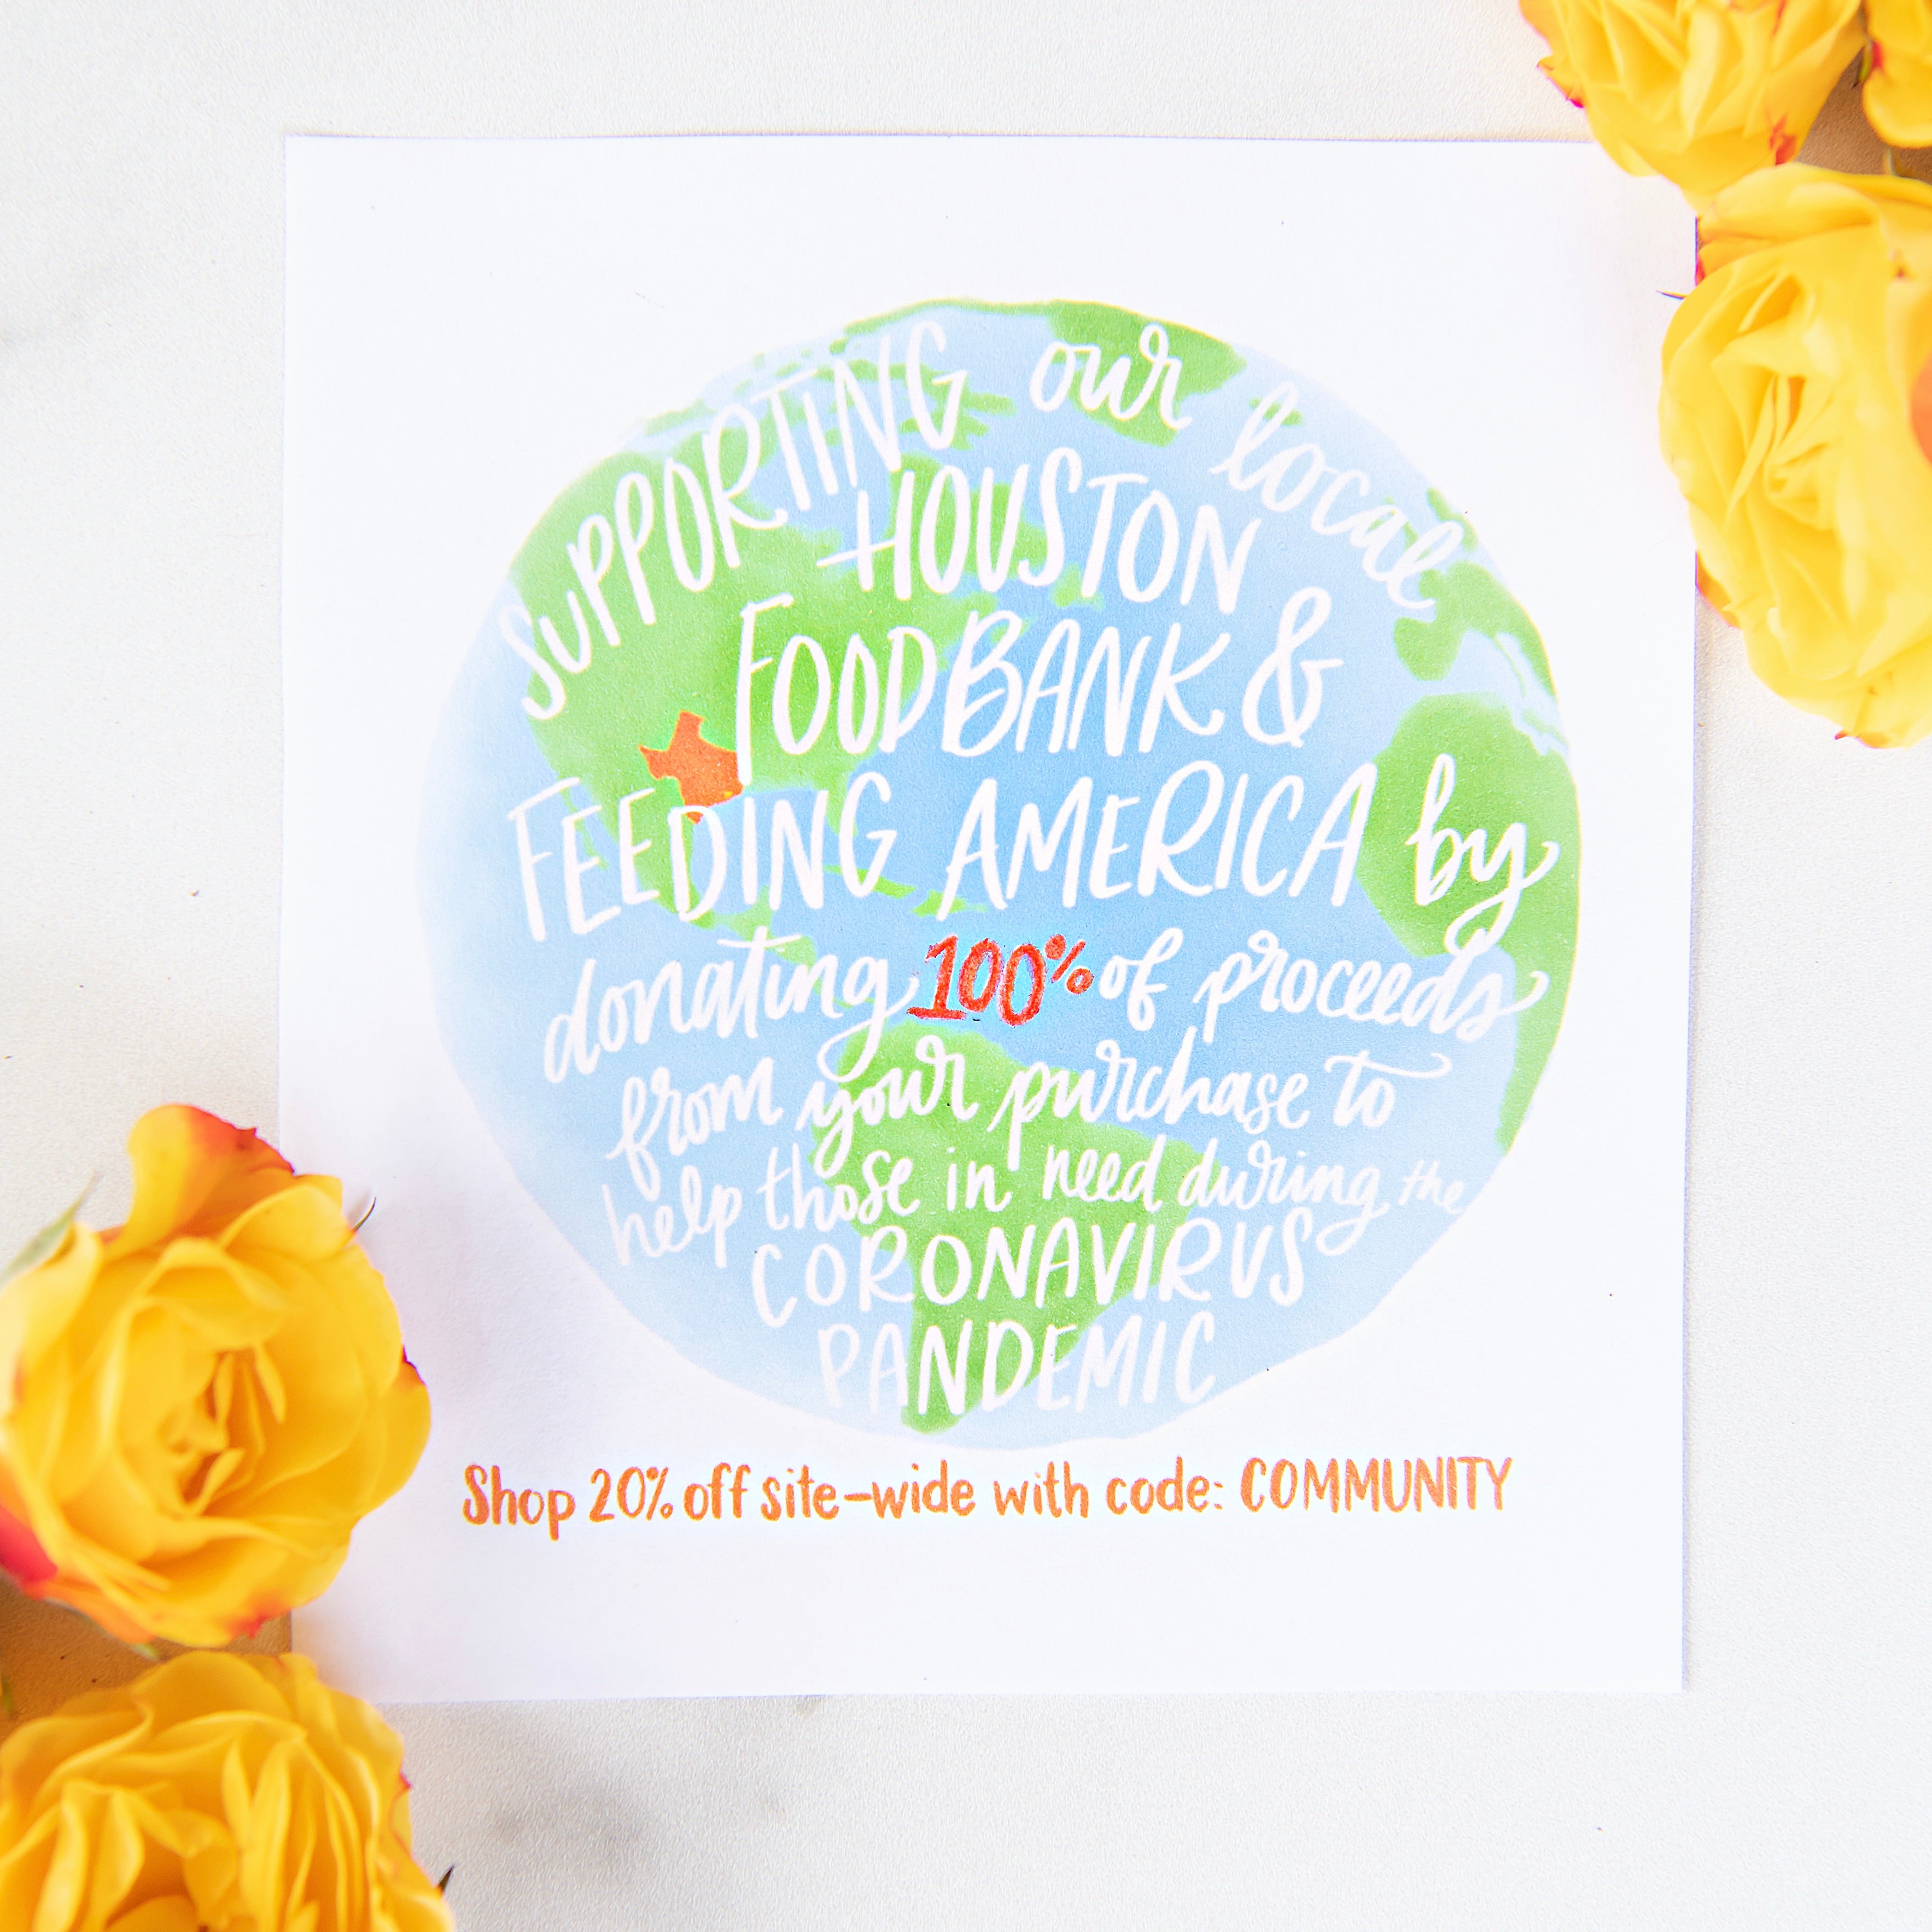 SUPPORTING our local
HOUSTON
FOODBANK &
FEEDING AMERICA by
donating 100% of proceeds
from your purchase to
help those in need during the
CORONAVIRUS
PANDEMIC
Shop 20% off site-wide with code: COMMUNITY